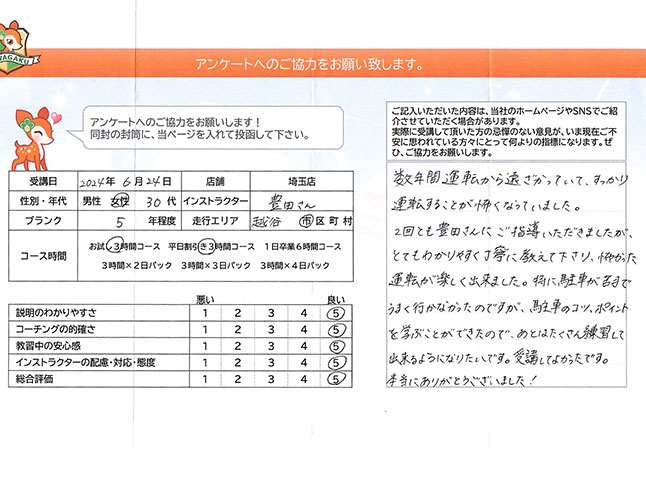 NAGAKU
アンケートへのご協力をお願い致します。
アンケートへのご協力をお願いします！
同封の封筒に、当ページを入れて投函して下さい。
受講日 2024年 6月 24日 店舗 埼玉店
性別・年代 男性 女性 30代 インストラクター 豊田さん
ブランク 5 年程度 走行エリア 越谷 市区町村
コース時間
お試し3時間コース 平日割引き3時間コース 1日卒業6時間コース
3時間×2日パック 3時間×3日パック 3時間×4日パック
悪い 良い
説明のわかりやすさ 1 2 3 4 5
コーチングの的確さ 1 2 3 4 5
教習中の安心感 1 2 3 4 5
インストラクターの配慮・対応・態度 1 2 3 4 5
総合評価 1 2 3 4 5
ご記入いただいた内容は、当社のホームページやSNSでご紹
介させていただく場合があります。
実際に受講して頂いた方の忌憚のない意見が、いま現在ご不
安に思われている方々にとって何よりの指標になります。ぜ
ひ、ご協力をお願いします。
数年間運転から遠ざかっていて、すっかり
運転することが怖くなっていました。
2回とも豊田さんにご指導いただきましたが、
とてもわかりやすく丁寧に教えて下さり、怖かった
運転が楽しく出来ました。特に駐車が苦手で
うまく行かなかったのですが、駐車のコツ、ポイント
を学ぶことができたので、あとはたくさん練習して
出来るようになりたいです。受講してよかったです。
本当にありがとうございました！